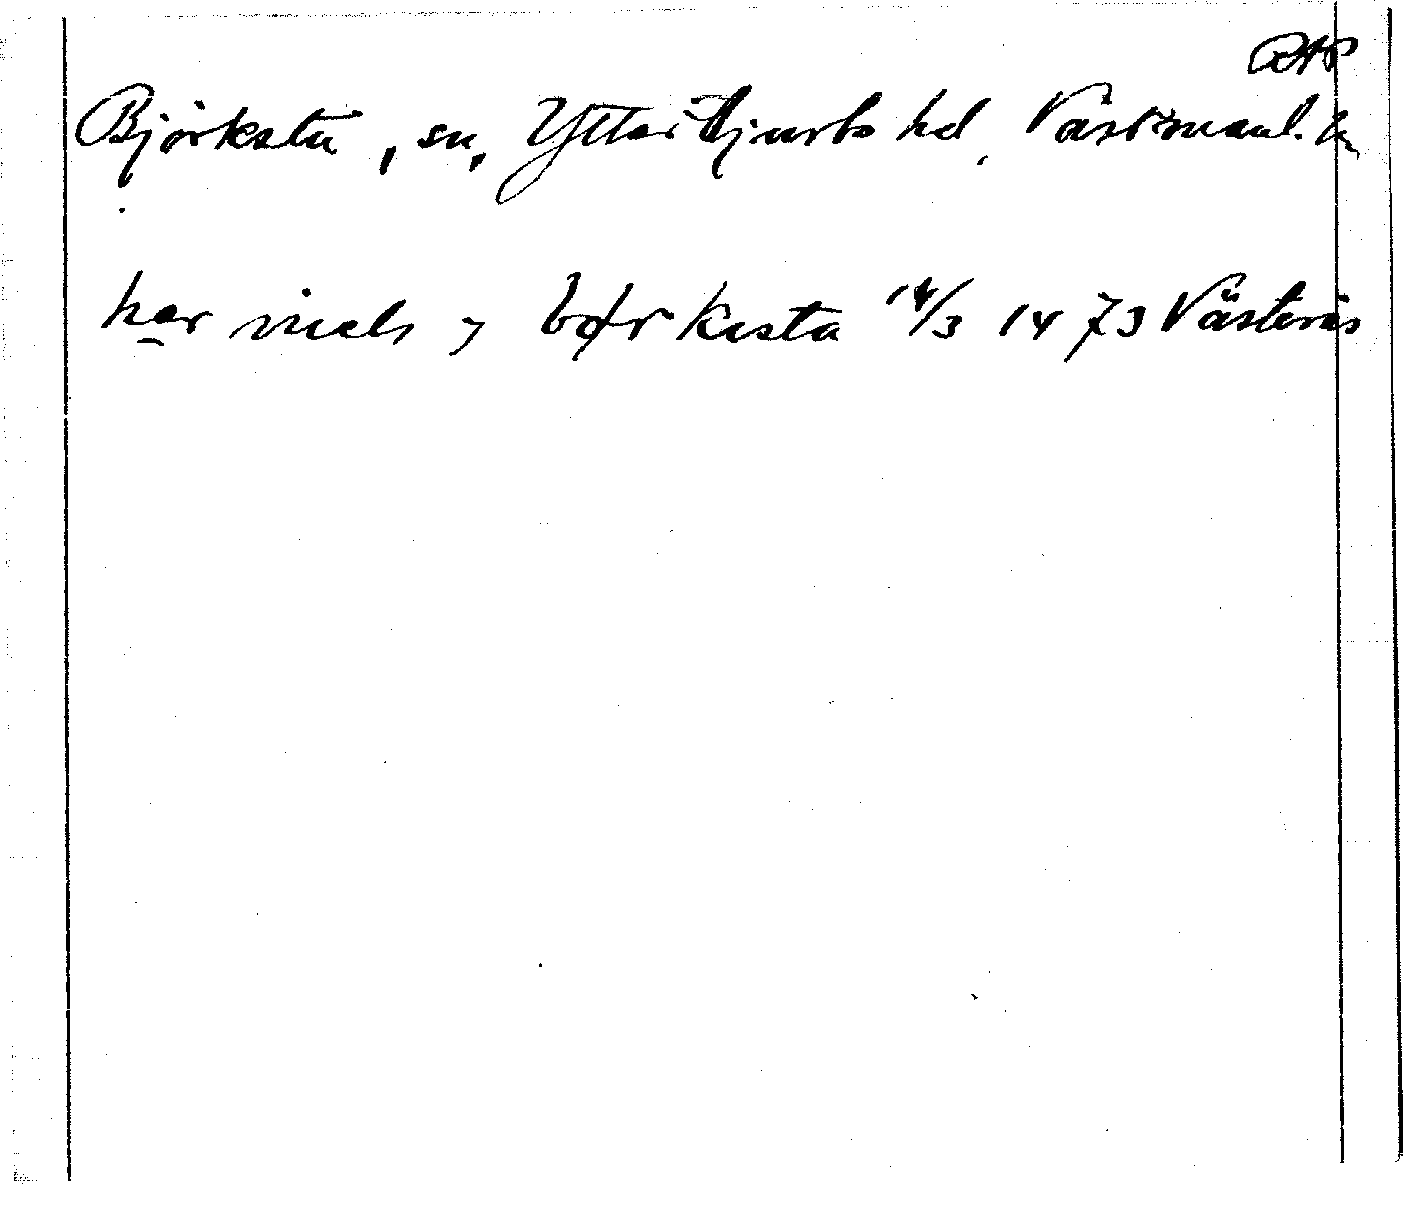 RAP
Björksta, sn, Yttertjurbo hd, Västmanl. ln
har niels j børkesta 14/3 1473 Västerås